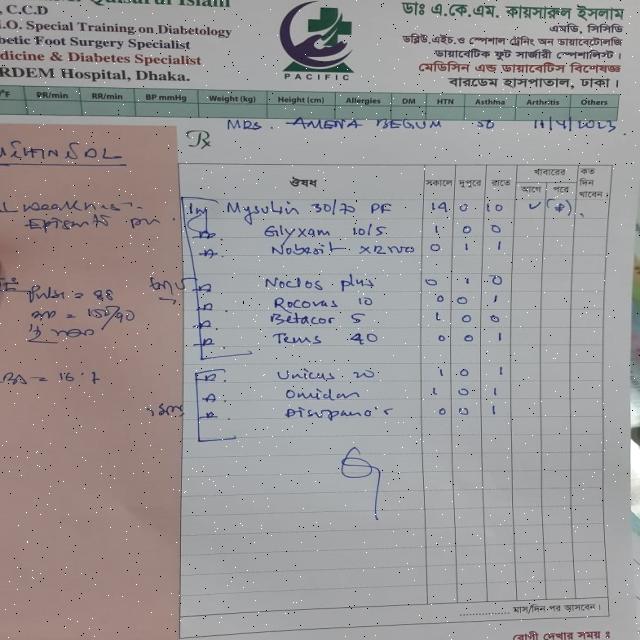 Quisarul Islam
, C.C.D
.O. Special Training on Diabetology
betic Foot Surgery Specialist
edicine & Diabetes Specialist
RDEM Hospital, Dhaka.
PACIFIC
ডাঃ এ.কে.এম. কায়সারুল ইসলাম
এমডি, সিসিডি
ডব্লিউ.এইচ.ও স্পেশাল ট্রেনিং অন ডায়াবেটোলজি
ডায়াবেটিক ফুট সার্জারী স্পেশালিস্ট।
মেডিসিন এন্ড ডায়াবেটিস বিশেষজ্ঞ
বারডেম হাসপাতাল, ঢাকা।
°F PR/min RR/min BP mmHg Weight (kg) Height (cm) Allergies DM HTN Asthma Arthritis Others
MRS. AMENA BEGUM 50 11/4/2023
Rx
ঔষধ সকালে দুপুরে রাতে খাবারের আগে পরে কত দিন খাবেন
Mysulin 30/70 PF 14 0 10
Glyxam 10/5 1 0 0
0 1 1
Noclos plus 0 1 0
Rocovas 10 0 0 1
Betacor 5 1 0 0
Tems 40 0 0 1
Pulse = 88
= 150/90
= 16.7
Unicus 20 1 0 1
Omidon 1 0 1
0 0 1
মাস/দিন পর আসবেন।
রোগী দেখার সময় ঃ